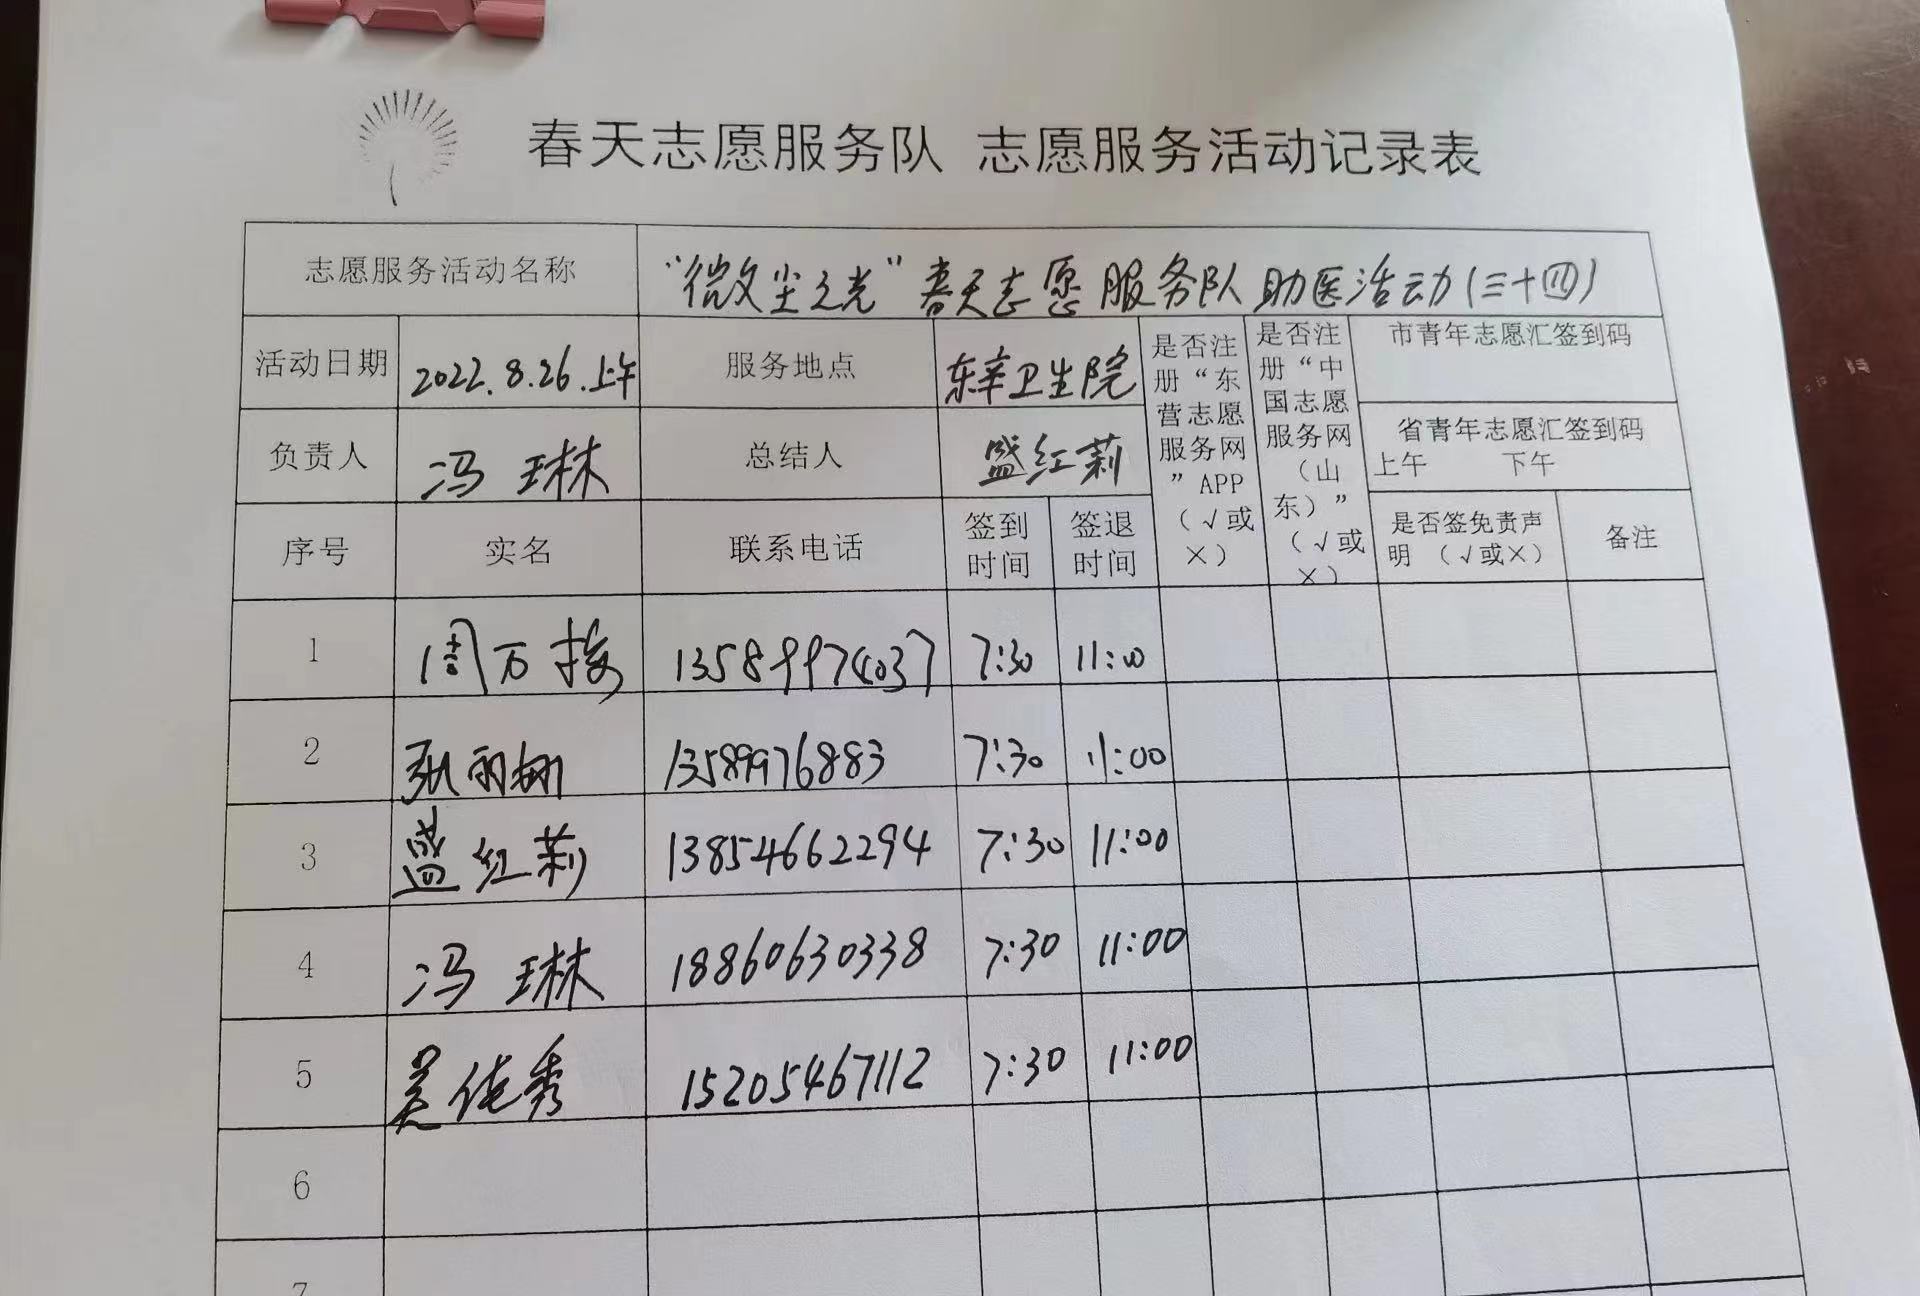 春天志愿服务队 志愿服务活动记录表
志愿服务活动名称 “微尘之光”春天志愿服务队助医活动(三十四)
活动日期 2022.8.26.上午 服务地点 东辛卫生院
是否注册“东营志愿服务网”APP（√或×）
是否注册“中国志愿服务网（山东）”（√或×）
市青年志愿汇签到码
省青年志愿汇签到码
上午 下午
负责人 冯琳 总结人 盛红莉
序号 实名 联系电话 签到时间 签退时间 是否签免责声明（√或×） 备注
1 周万接 13589974037 7:30 11:00
2 张丽娜 13589976883 7:30 11:00
3 盛红莉 13854662294 7:30 11:00
4 冯琳 18860630338 7:30 11:00
5 秀 15205467112 7:30 11:00
6
7